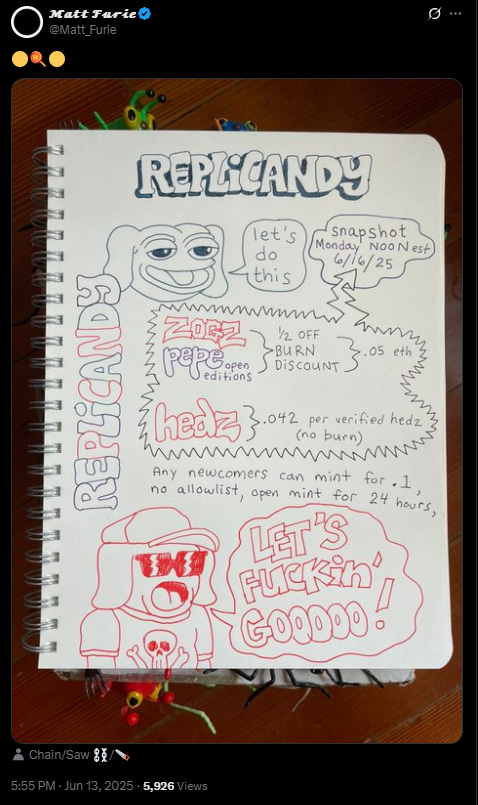 Matt Furie
@Matt_Furie
REPLiCANDY
let's
do
this
snapshot
Monday NOON est
6/16/25
REPLiCANDY
ZOGZ
pepe open
editions
1/2 OFF
BURN
DISCOUNT
.05 eth
hedz
.042 per verified hedz
(no burn)
Any newcomers can mint for .1,
no allowlist, open mint for 24 hours,
LET'S
FUCKiN'
GOOOOO!
Chain/Saw
5:55 PM · Jun 13, 2025 · 5,926 Views